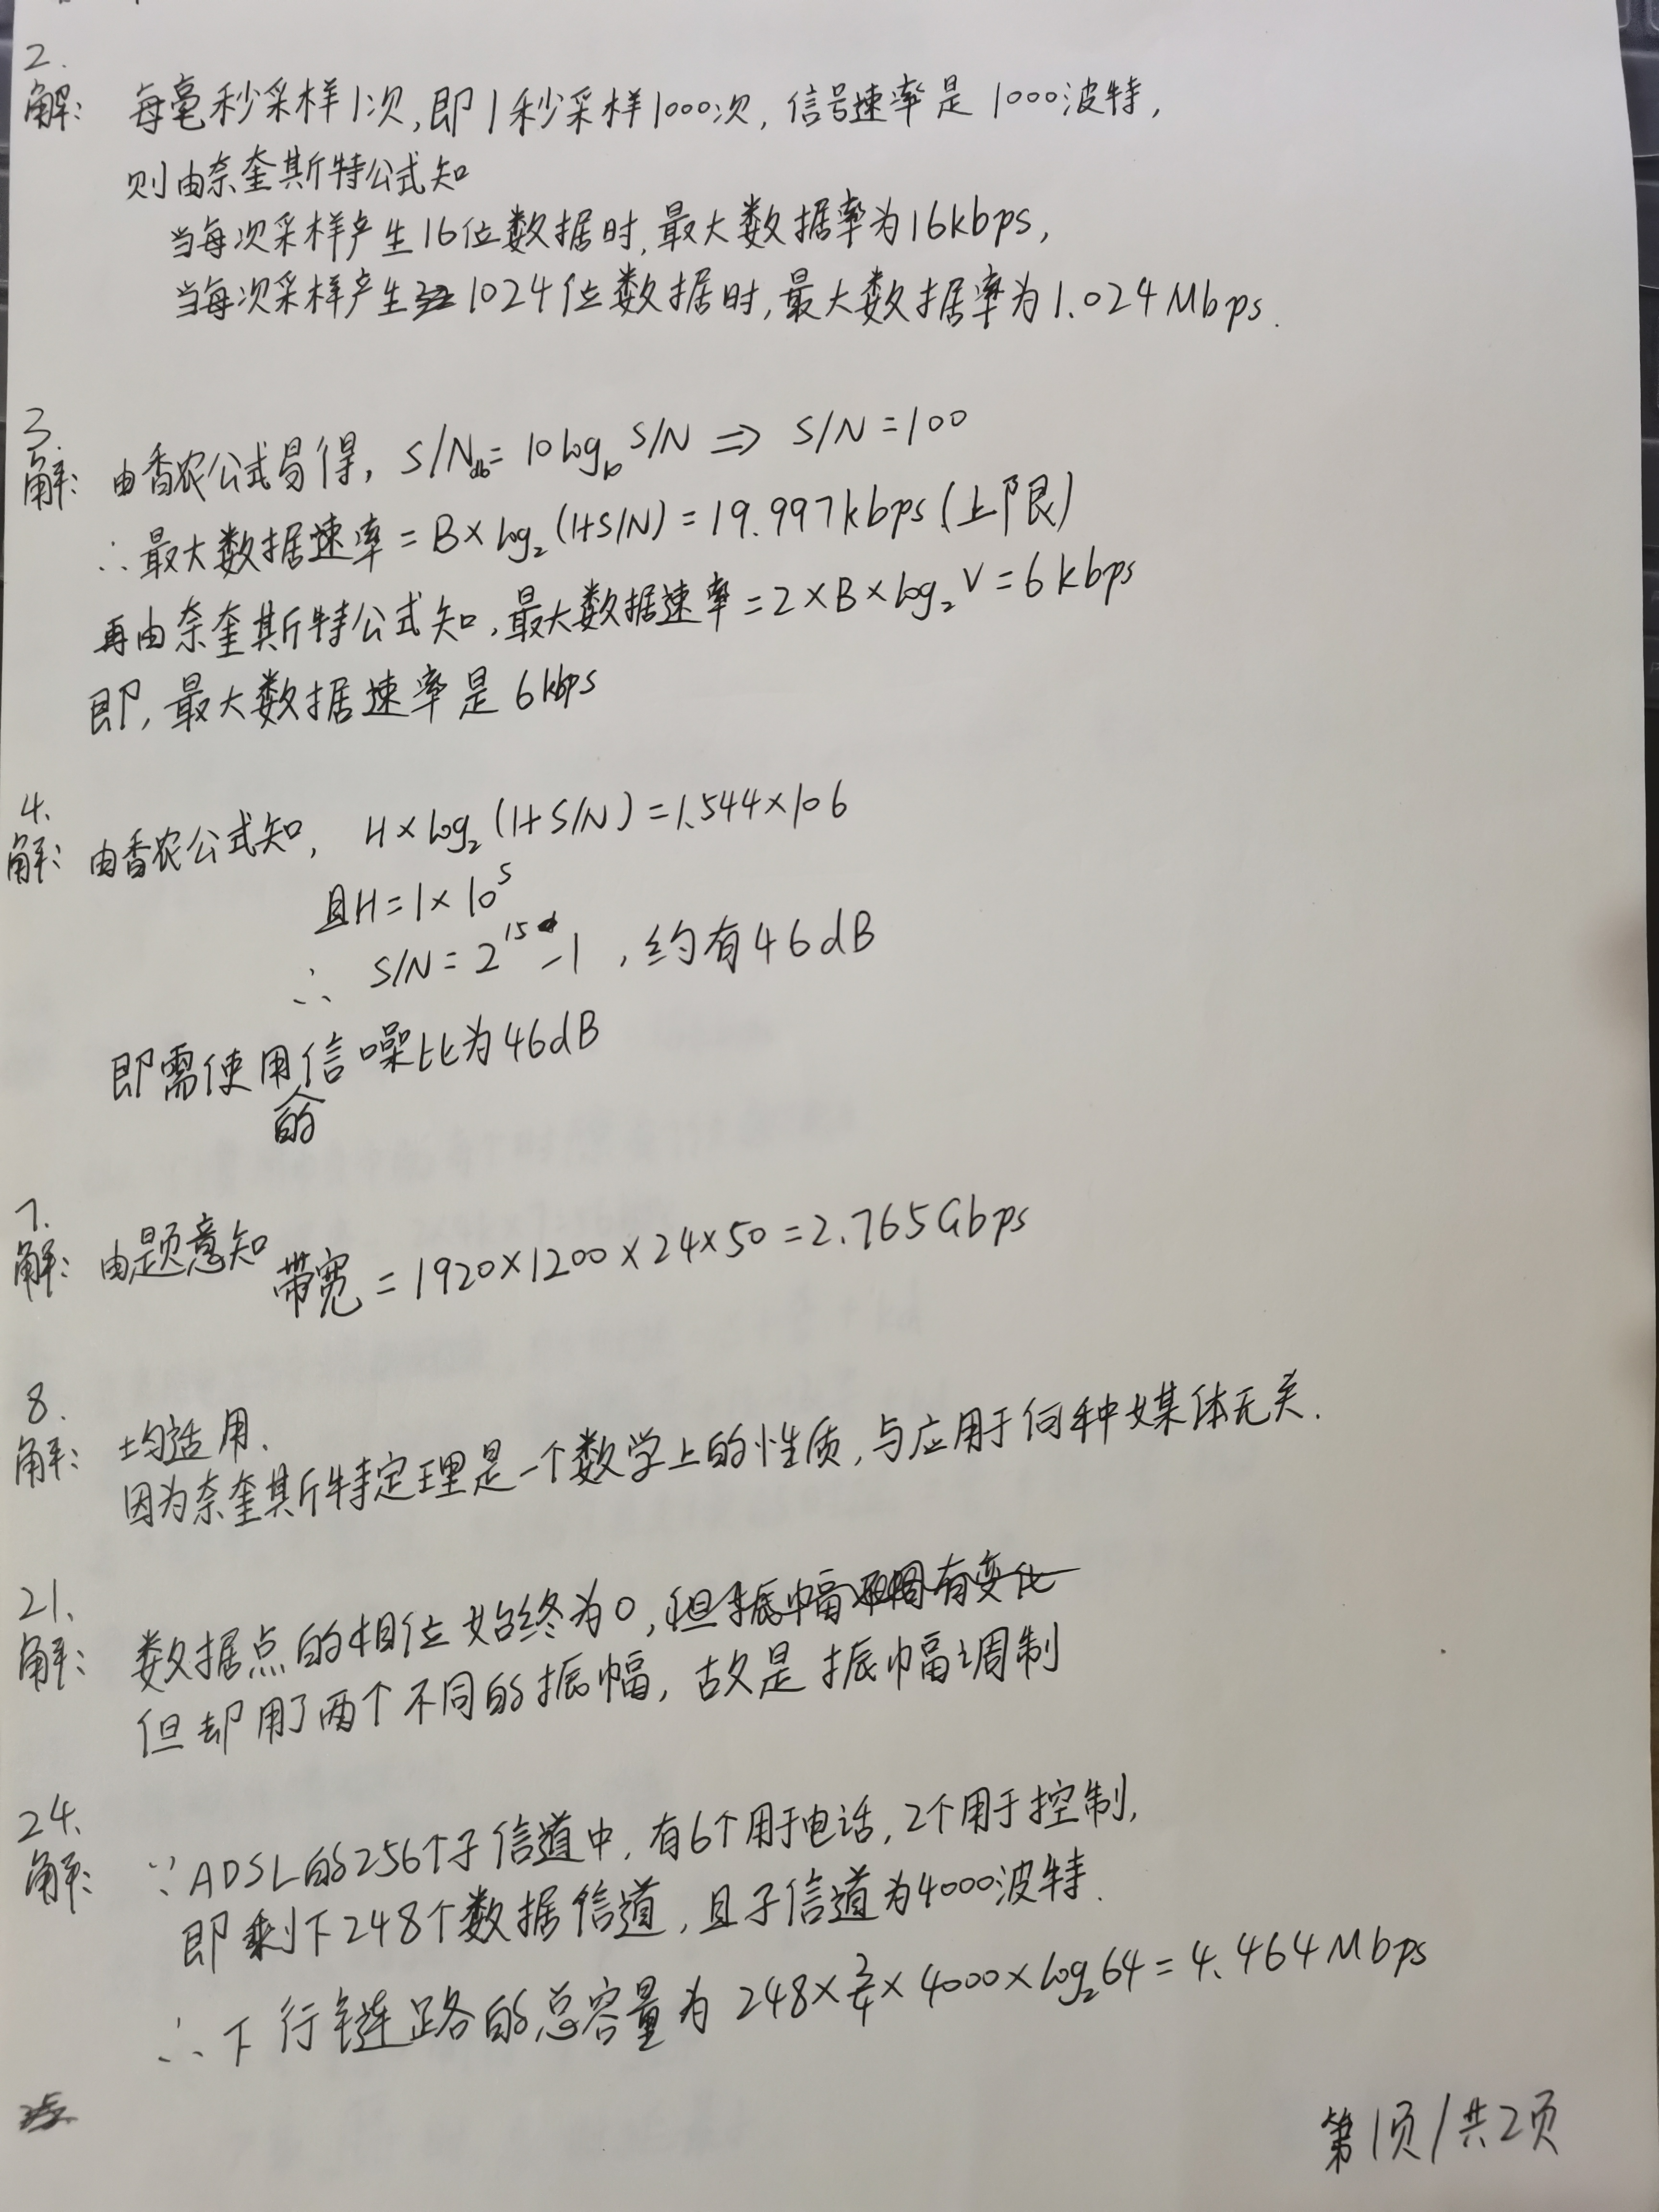 2.
解: 每毫秒采样1次,即1秒采样1000次,信号速率是1000波特,
则由奈奎斯特公式知
当每次采样产生16位数据时,最大数据率为16kbps,
当每次采样产生1024位数据时,最大数据率为1.024Mbps.
3.
解: 由香农公式易得, S/Ndb=10log₁₀S/N ⇒ S/N=100
∴最大数据速率=B×log₂(1+S/N)=19.997kbps(上限)
再由奈奎斯特公式知,最大数据速率=2×B×log₂V=6kbps
即,最大数据速率是6kbps
4.
解: 由香农公式知, H×log₂(1+S/N)=1.544×106
且H=1×10⁵
∴ S/N=2¹⁵-1,约有46dB
即需使用信噪比为46dB
的
7.
解: 由题意知 带宽=1920×1200×24×50=2.765Gbps
8.
解: 均适用.
因为奈奎斯特定理是一个数学上的性质,与应用于何种媒体无关.
21.
解: 数据点的相位始终为0,但振幅有变化
但却用了两个不同的振幅,故是振幅调制
24.
解: ∵ADSL的256个子信道中,有6个用于电话,2个用于控制,
即剩下248个数据信道,且子信道为4000波特.
∴下行链路的总容量为 248×3/4×4000×log₂64=4.464Mbps
第1页/共2页